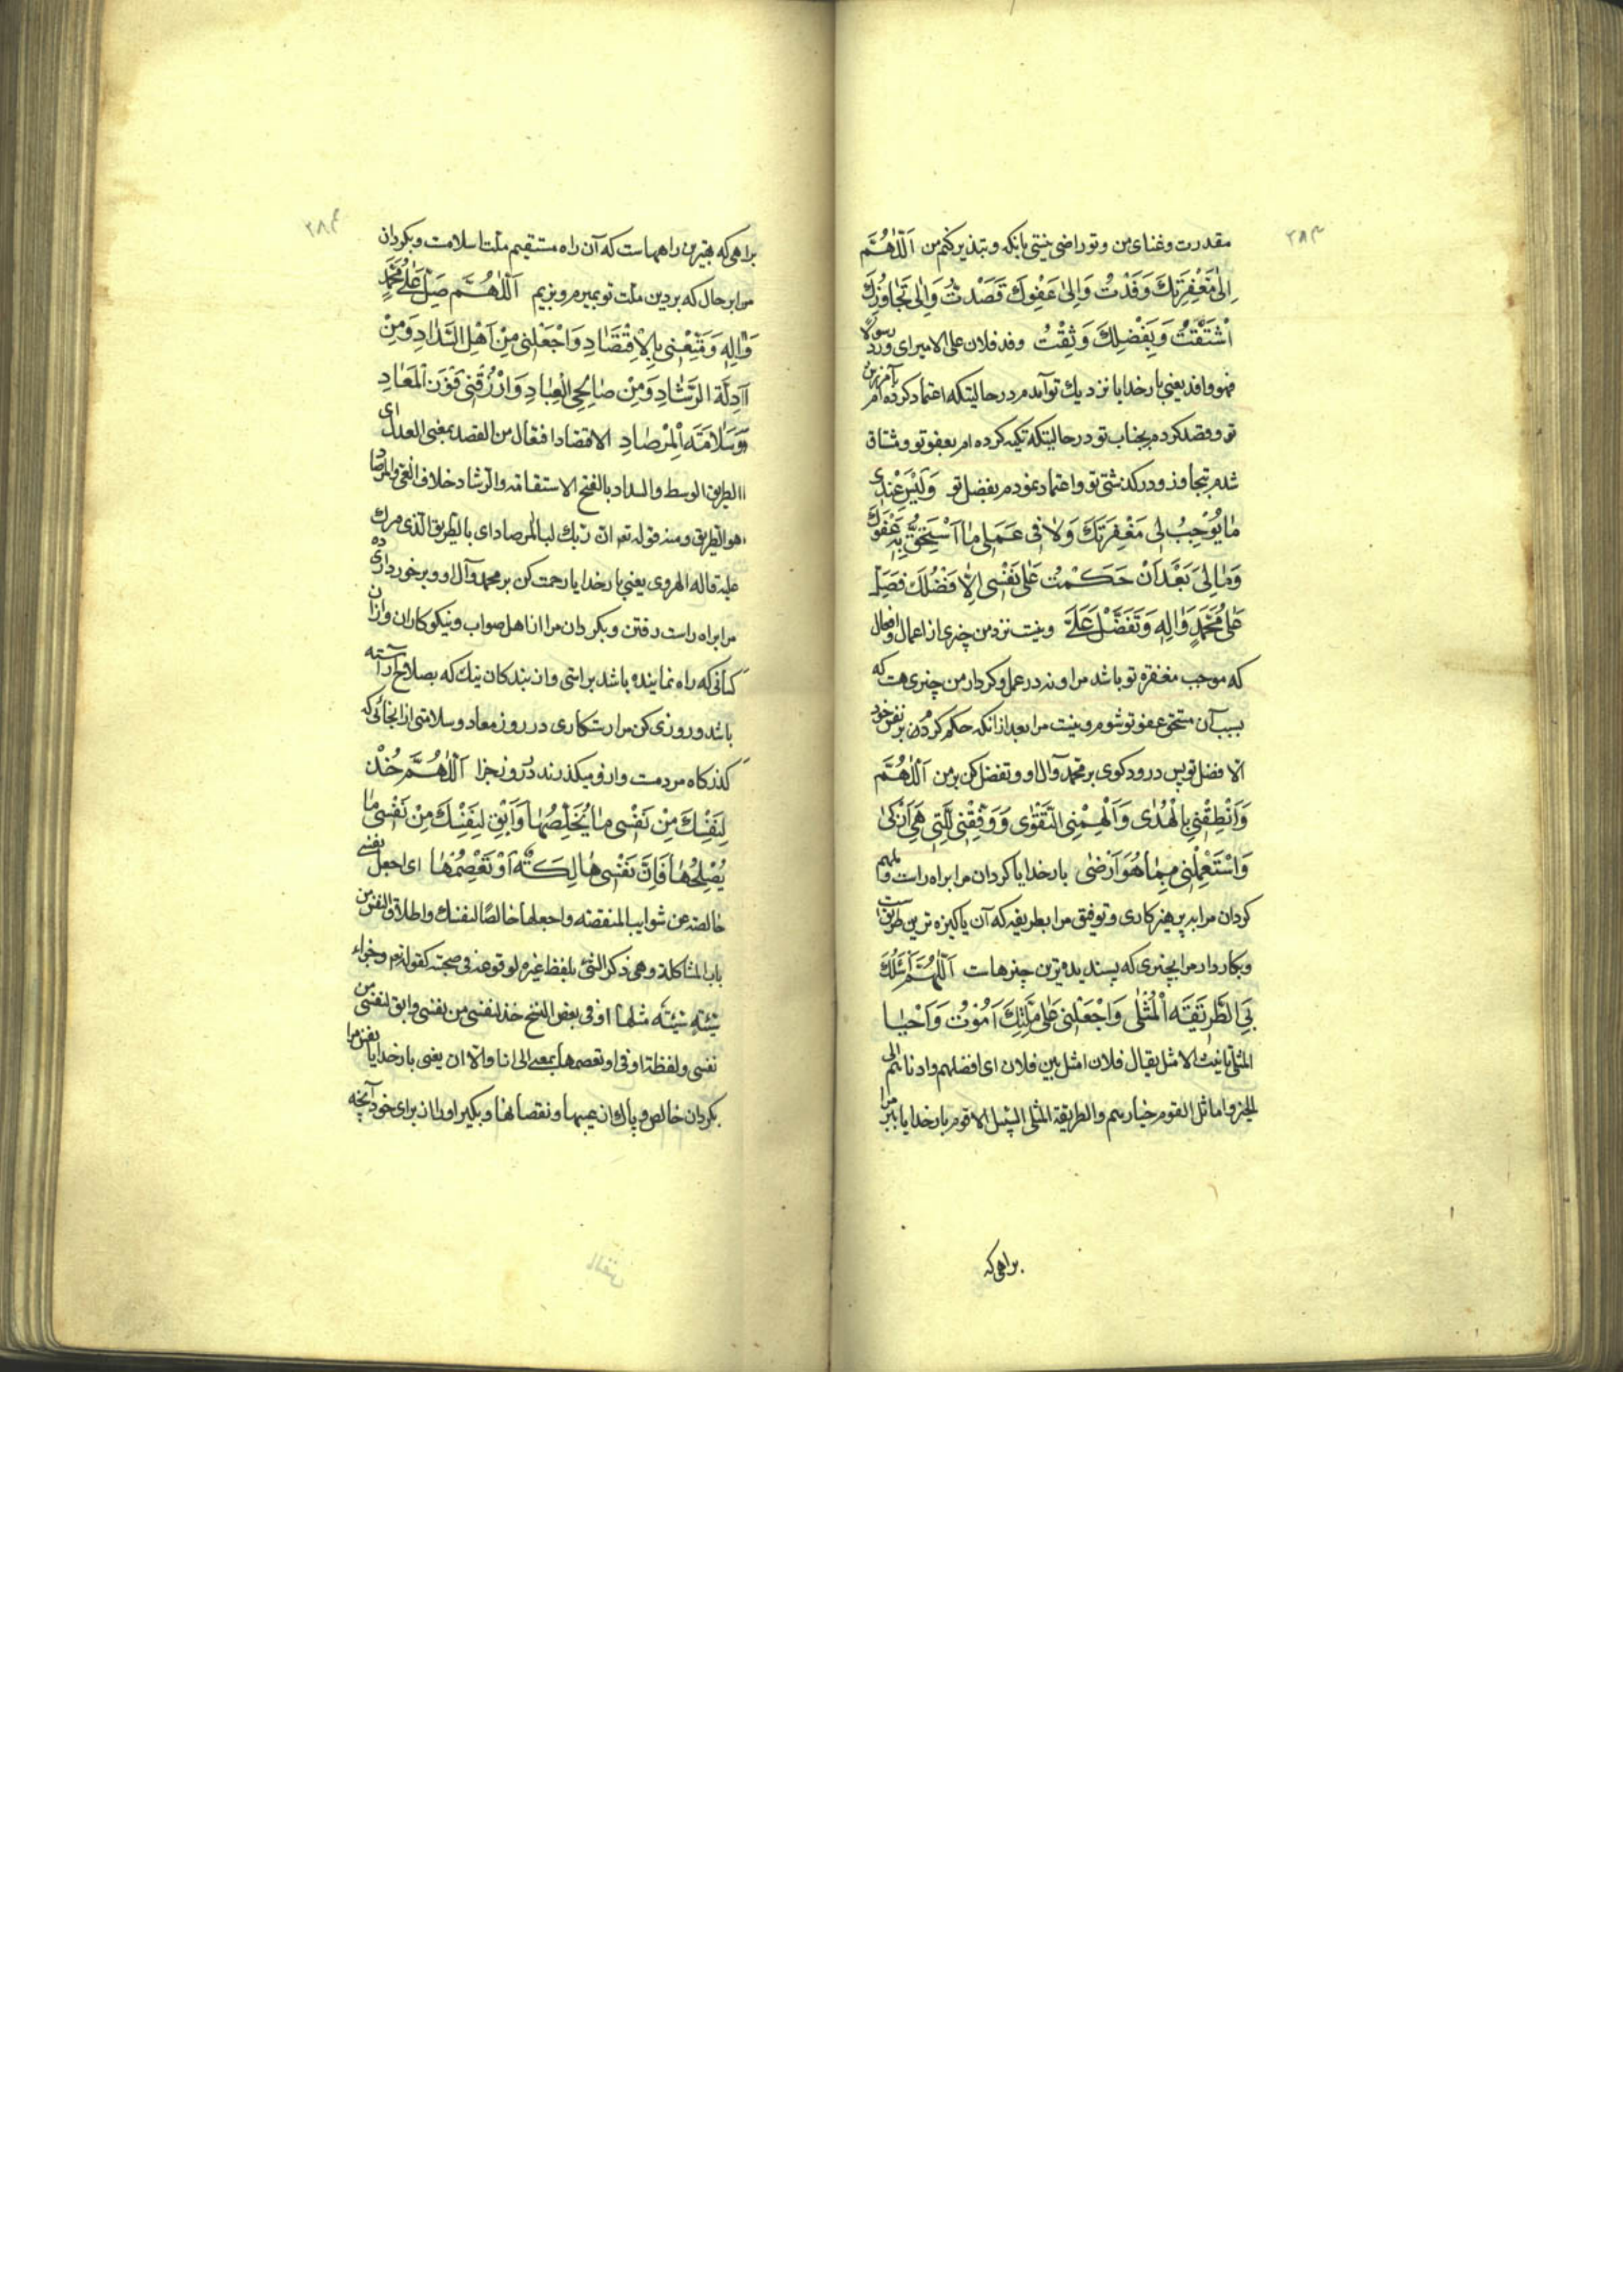 ۲۸۳
مقدرت وغنای من وتو راضی نیستی بانکه وتبذیر کنم من اَللّٰهُمَّ
اِلیٰ مَغْفِرَتِكَ وَفَدْتُ وَاِلیٰ عَفْوِكَ قَصَدْتُ وَاِلیٰ تَجَاوُزِكَ
اشْتَقْتُ وَبِفَضْلِكَ وَثِقْتُ وفد فلان علی الامیر ای ورد رسولا
فهو وافد یعنی بار خدایا نزدیك تو آمدم در حالیتکه اعتماد کرده ام بآمرزش
تو وقصد کردم بجناب تو در حالیتکه تکیه کرده ام بعفو تو ومشتاق
شدم بتجاوز ودر کذشتی تو واعتماد نمودم بفضل تو وَلَیْسَ عِنْدِی
مٰا یُوْجِبُ لِی مَغْفِرَتَكَ وَلاٰ فِی عَمَلِی مٰا اَسْتَحِقُّ بِهِ عَفْوَكَ
وَمٰا لِیَ بَعْدَ اَنْ حَكَمْتُ عَلیٰ نَفْسِی اِلّٰا فَضْلُكَ فَصَلِّ
عَلیٰ مُحَمَّدٍ وَاٰلِهِ وَتَفَضَّلْ عَلَیَّ ونیست نزد من چیزی از اعمال وافعال
که موجب مغفرة تو باشد مرا ونه در عمل وکردار من چیزی هست که
بسبب آن مستحق عفو تو شوم ونیست مرا بعد از انکه حکم کردم من بر نفس خود
الا فضل تو پس درود کوی بر محمد وآل او وتفضل کن بر من اَللّٰهُمَّ
وَاَنْطِقْنِی بِالْهُدٰی وَاَلْهِمْنِی التَّقْوٰی وَوَفِّقْنِی لِلَّتِی هِیَ اَزْكیٰ
وَاسْتَعْمِلْنِی بِمٰا هُوَ اَرْضیٰ بار خدایا کردان مرا براه راست وملهم
کردان مرا بپرهیزکاری وتوفیق مرا بطریقه که آن پاکیزه ترین طریق است
وبکار دار مرا بچیزی که پسندیده ترین چیزهاست اَللّٰهُمَّ اسْلُكْ
بِیَ الطَّرِیقَةَ الْمُثْلیٰ وَاجْعَلْنِی عَلیٰ مِلَّتِكَ اَمُوْتُ وَاَحْیٰا
المثلی تانیث الامثل یقال فلان امثل بین فلان ای افضلهم وادناهم الی
الخیر واماثل القوم خیارهم والطریقة المثلی السبیل الاقوم بار خدایا ببر مرا
براهی که
۲۸۴
براهی که بهترین راههاست که آن راه مستقیم ملت اسلامست وبکردان
مرا بر حال که بر دین ملت تو بمیرم وبزیم اَللّٰهُمَّ صَلِّ عَلیٰ مُحَمَّدٍ
وَاٰلِهِ وَمَتِّعْنِی بِالْاِقْتِصَادِ وَاجْعَلْنِی مِنْ اَهْلِ السَّدَادِ وَمِنْ
اَدِلَّةِ الرَّشَادِ وَمِنْ صَالِحِی الْعِبَادِ وَارْزُقْنِی فَوْزَ الْمَعَادِ
وَسَلاٰمَةَ الْمِرْصَادِ الاقتصاد افتعال من القصد بمعنی العدل ای
الطریق الوسط والسداد بالفتح الاستقامة والرشاد خلاف الغی والمرصاد
هو الطریق ومنه قوله تعم ان ربك لبالمرصاد ای بالطریق الذی ممرك
علیه قاله الهروی یعنی بار خدایا رحمت کن بر محمد وآل او وبرخورداری ده
مرا براه راست رفتن وبکردان مرا از اهل صواب ونیکوکاران واز ان
کسانی که راه نماینده باشد براستی واز بندکان نیك که بصلاح آراسته
باشد وروزی کن مرا رستکاری در روز معاد وسلامتی از انجائی که
کذرکاه مردمست واز و میکذرند در روز جزا اَللّٰهُمَّ خُذْ
لِنَفْسِكَ مِنْ نَفْسِی مٰا یُخَلِّصُهٰا وَاَبْقِ لِنَفْسِكَ مِنْ نَفْسِی مٰا
یُصْلِحُهٰا فَاِنَّ نَفْسِی هٰالِكَةٌ اَوْ تَعْصِمُهٰا ای اجعل نفسی
خالصة عن شوایب المنقصة واجعلها خالصًا لنفسك واطلاق النفس من
باب المشاکلة وهی ذکر الشئ بلفظ غیره لوقوعه فی صحبته کقوله تعم وجزاء
سیئةٍ سیئة مثلها او فی بعض النسخ خذ لنفسی من نفسی وابق لنفسی من
نفسی ولفظة او فی او تعصمها بمعنی الی ان او الا ان یعنی بار خدایا نفس مرا
بکردان خالص وپاك از عیبها ونقصانها وبکیر او را از برای خود آنچه